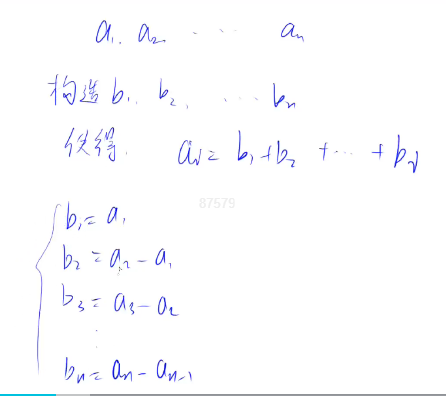 a₁. a₂. ⋯ ⋯ aₙ
构造 b₁. b₂. ⋯ ⋯ bₙ
使得. aₙ = b₁ + b₂ + ⋯ + bₙ
87579
b₁ = a₁
b₂ = a₂ - a₁
b₃ = a₃ - a₂
⋮
bₙ = aₙ - aₙ₋₁